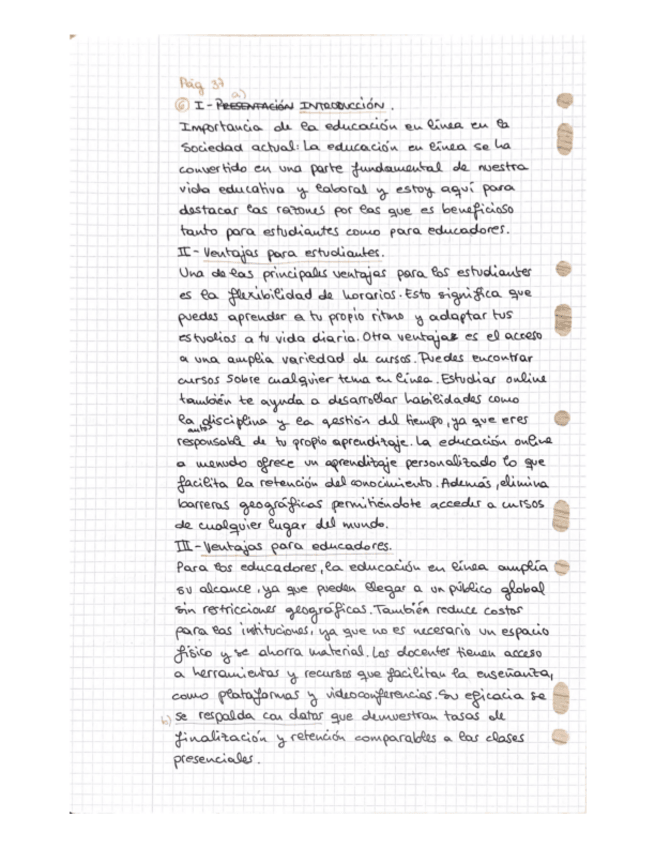 Pág 37
a)
6 I- PRESENTACIÓN INTRODUCCIÓN.
Importancia de la educación en línea en la
sociedad actual: La educación en línea se ha
convertido en una parte fundamental de nuestra
vida educativa y laboral y estoy aquí para
destacar las razones por las que es beneficioso
tanto para estudiantes como para educadores.
II- Ventajas para estudiantes.
Una de las principales ventajas para los estudiantes
es la flexibilidad de horarios. Esto significa que
puedes aprender a tu propio ritmo y adaptar tus
estudios a tu vida diaria. Otra ventaja es el acceso
a una amplia variedad de cursos. Puedes encontrar
cursos sobre cualquier tema en línea. Estudiar online
también te ayuda a desarrollar habilidades como
la autodisciplina y la gestión del tiempo, ya que eres
responsable de tu propio aprendizaje. La educación online
a menudo ofrece un aprendizaje personalizado lo que
facilita la retención del conocimiento. Además, elimina
barreras geográficas permitiéndote acceder a cursos
de cualquier lugar del mundo.
III- Ventajas para educadores.
Para los educadores, la educación en línea amplía
su alcance, ya que pueden llegar a un público global
sin restricciones geográficas. También reduce costos
para las instituciones, ya que no es necesario un espacio
físico y se ahorra material. Los docentes tienen acceso
a herramientas y recursos que facilitan la enseñanza,
como plataformas y videoconferencias. Su eficacia se
b) se respalda con datos que demuestran tasas de
finalización y retención comparables a las clases
presenciales.